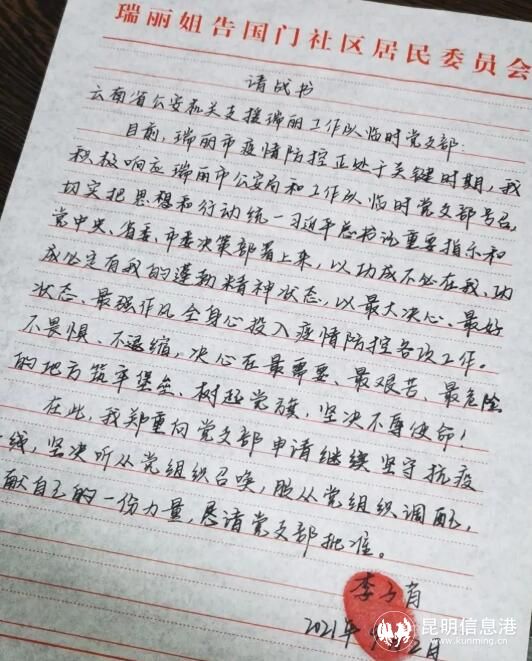 瑞丽姐告国门社区居民委员会
请战书
云南省公安机关支援瑞丽工作队临时党支部:
目前,瑞丽市疫情防控正处于关键时期,我
积极响应瑞丽市公安局和工作队临时党支部号召,
切实把思想和行动统一习近平总书记重要指示和
党中央、省委、市委决策部署上来,以功成不必在我、功
成必定有我的蓬勃精神状态,以最大决心、最好
状态、最强作风全身心投入疫情防控各项工作。
不畏惧、不退缩,决心在最需要、最艰苦、最危险
的地方筑牢堡垒、树起党旗,坚决不辱使命!
在此,我郑重向党支部申请继续坚守抗疫
一线,坚决听从党组织召唤,服从党组织调配,
献自己的一份力量,恳请党支部批准。
李
2021年
昆明信息港
www.kunming.cn